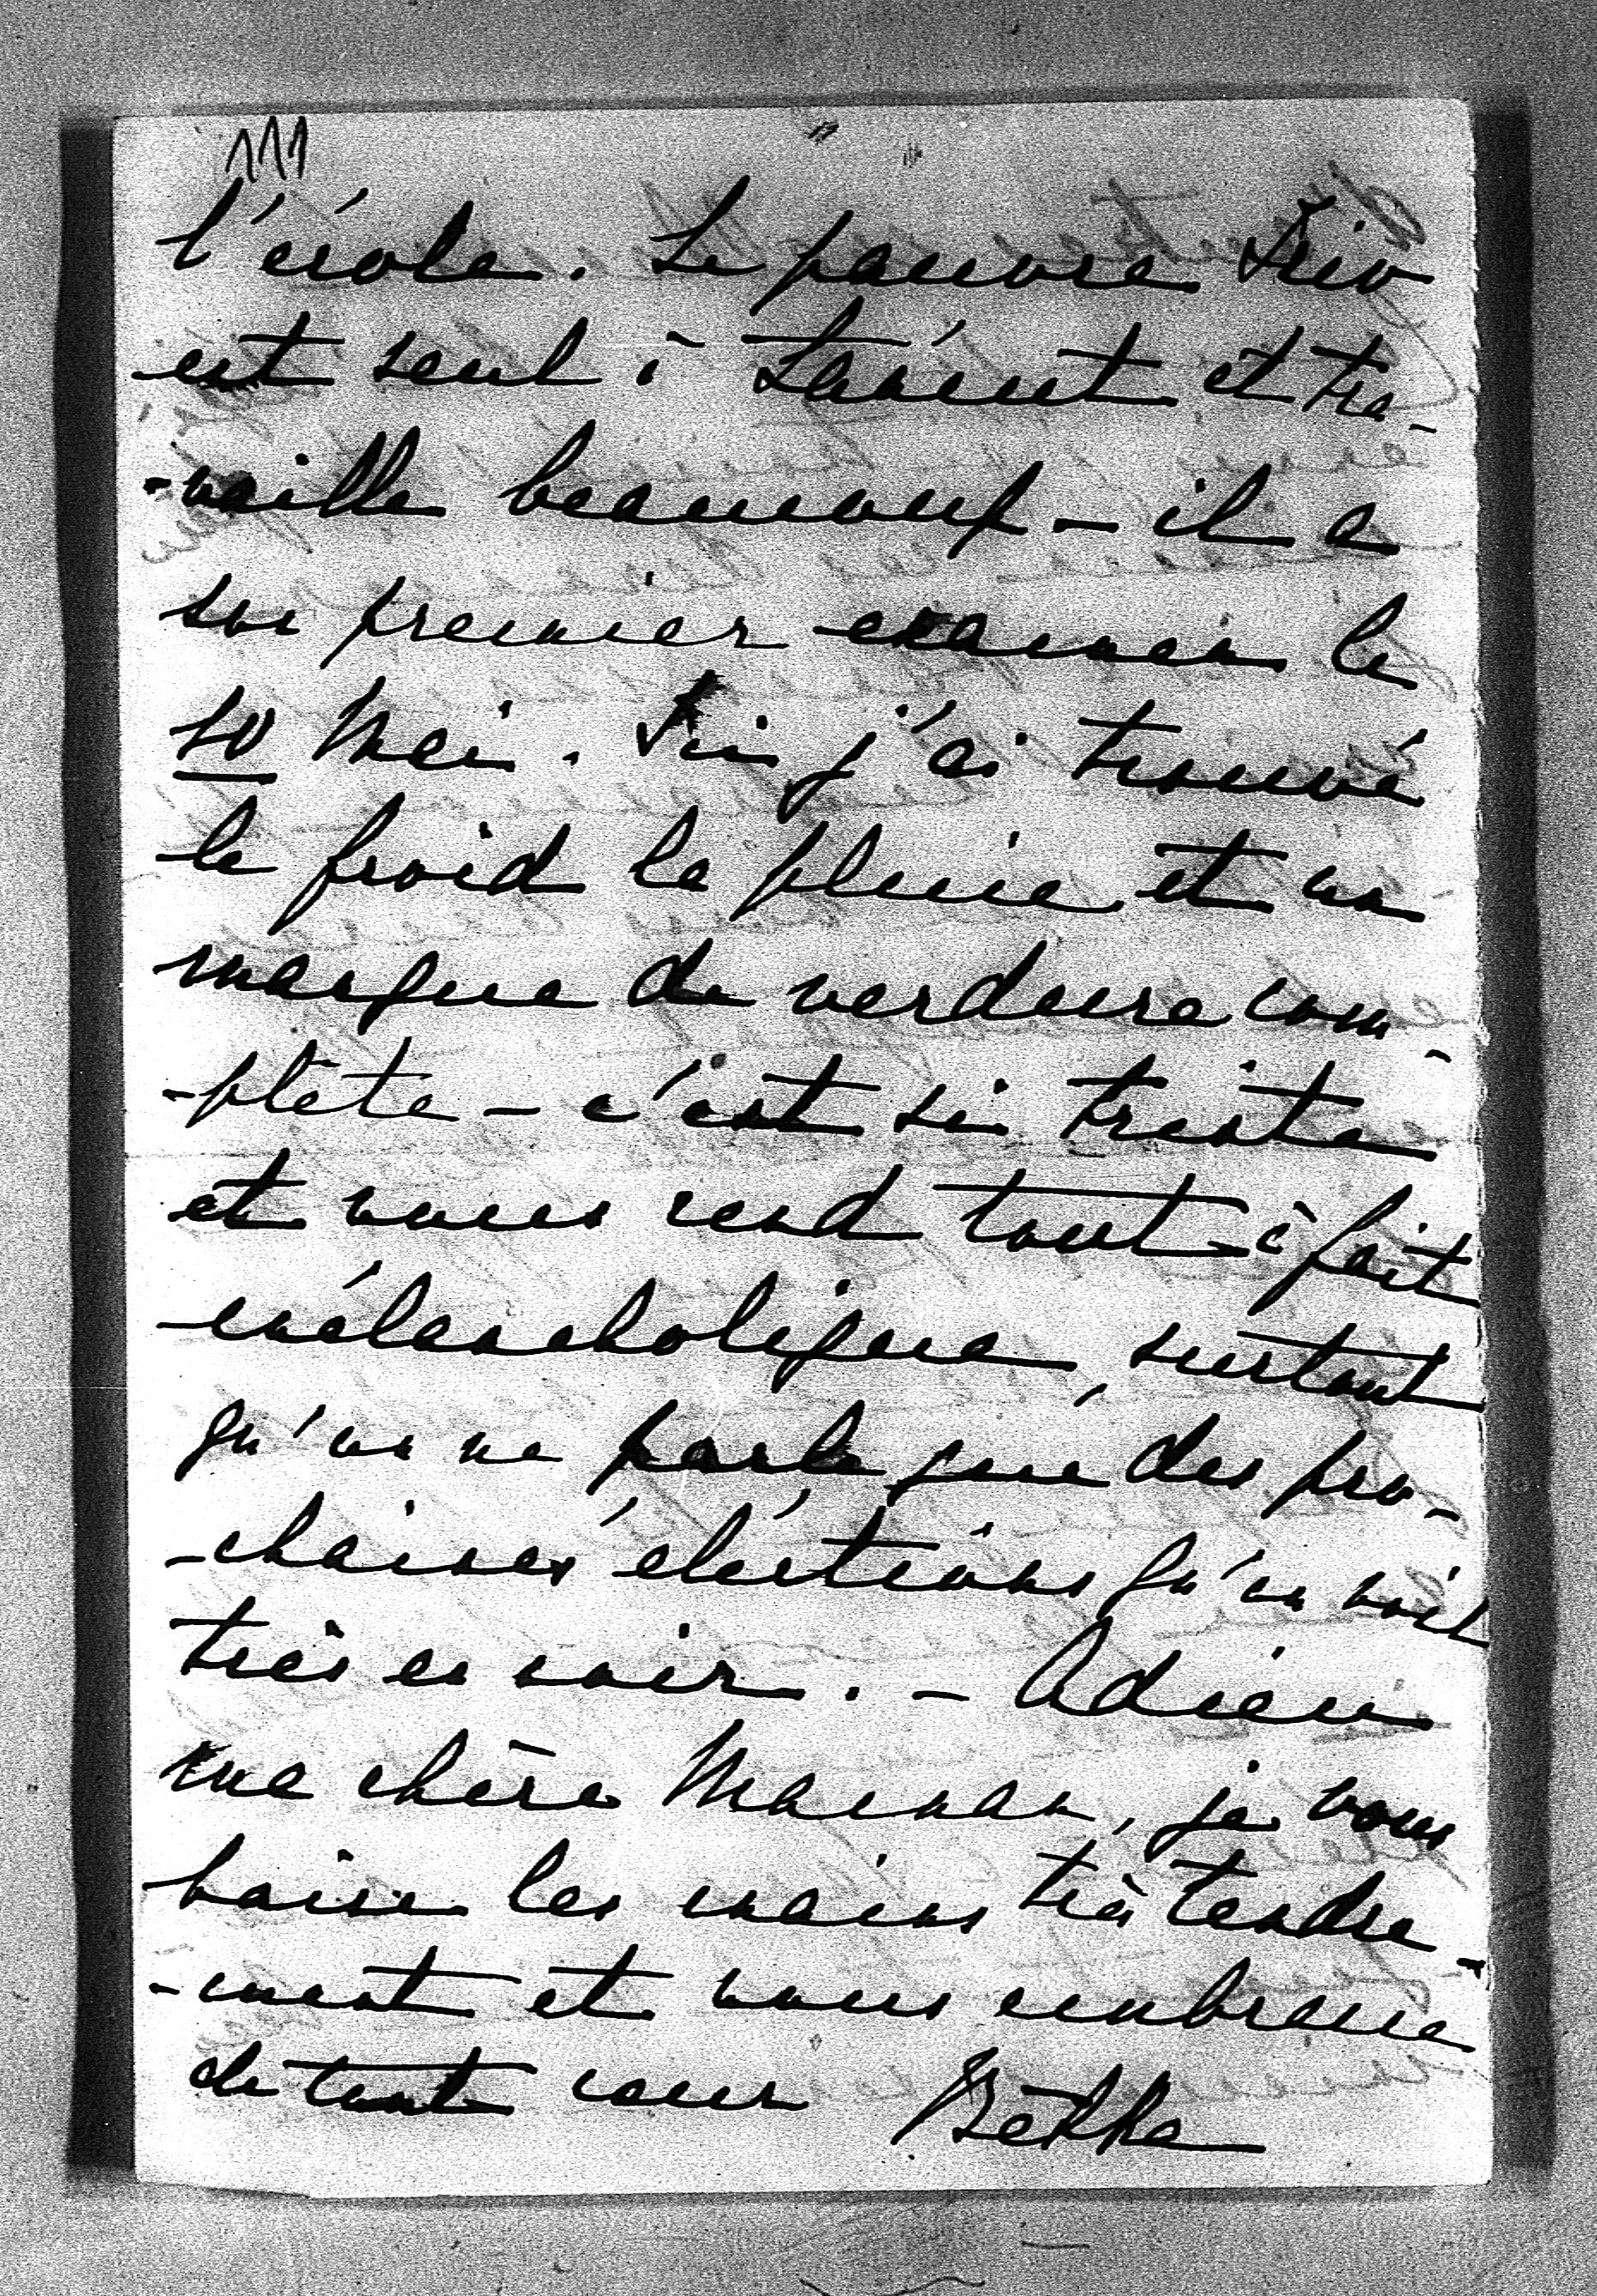 111
l'école. Le pauvre
est seul à et tra-
-vaille beaucoup - il a
son premier examen le
10 Mai. Ici j'ai trouvé
le froid la pluie et un
manque de verdure com-
-plète - c'est si triste
et vous rend tout-à fait
mélancholique, surtout
qu'on ne parle que des pro-
-chaines élections qu'on voit
très en noir. - Adieu
ma chère Maman, je vous
baise les mains très tendre-
-ment et vous embrasse
de tout cœur